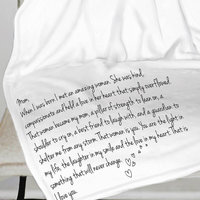 Mom,
When I was born I met an amazing woman. She was kind,
compassionate and held a love in her heart that simply overflowed.
That woman became my mom, a pillar of strength to lean on, a
shoulder to cry on, a best friend to laugh with, and a guardian to
shelter me from any storm. That woman is you. You are the light in
my life, the laughter in my smile and the love in my heart. That is
something that will never change.
I love you